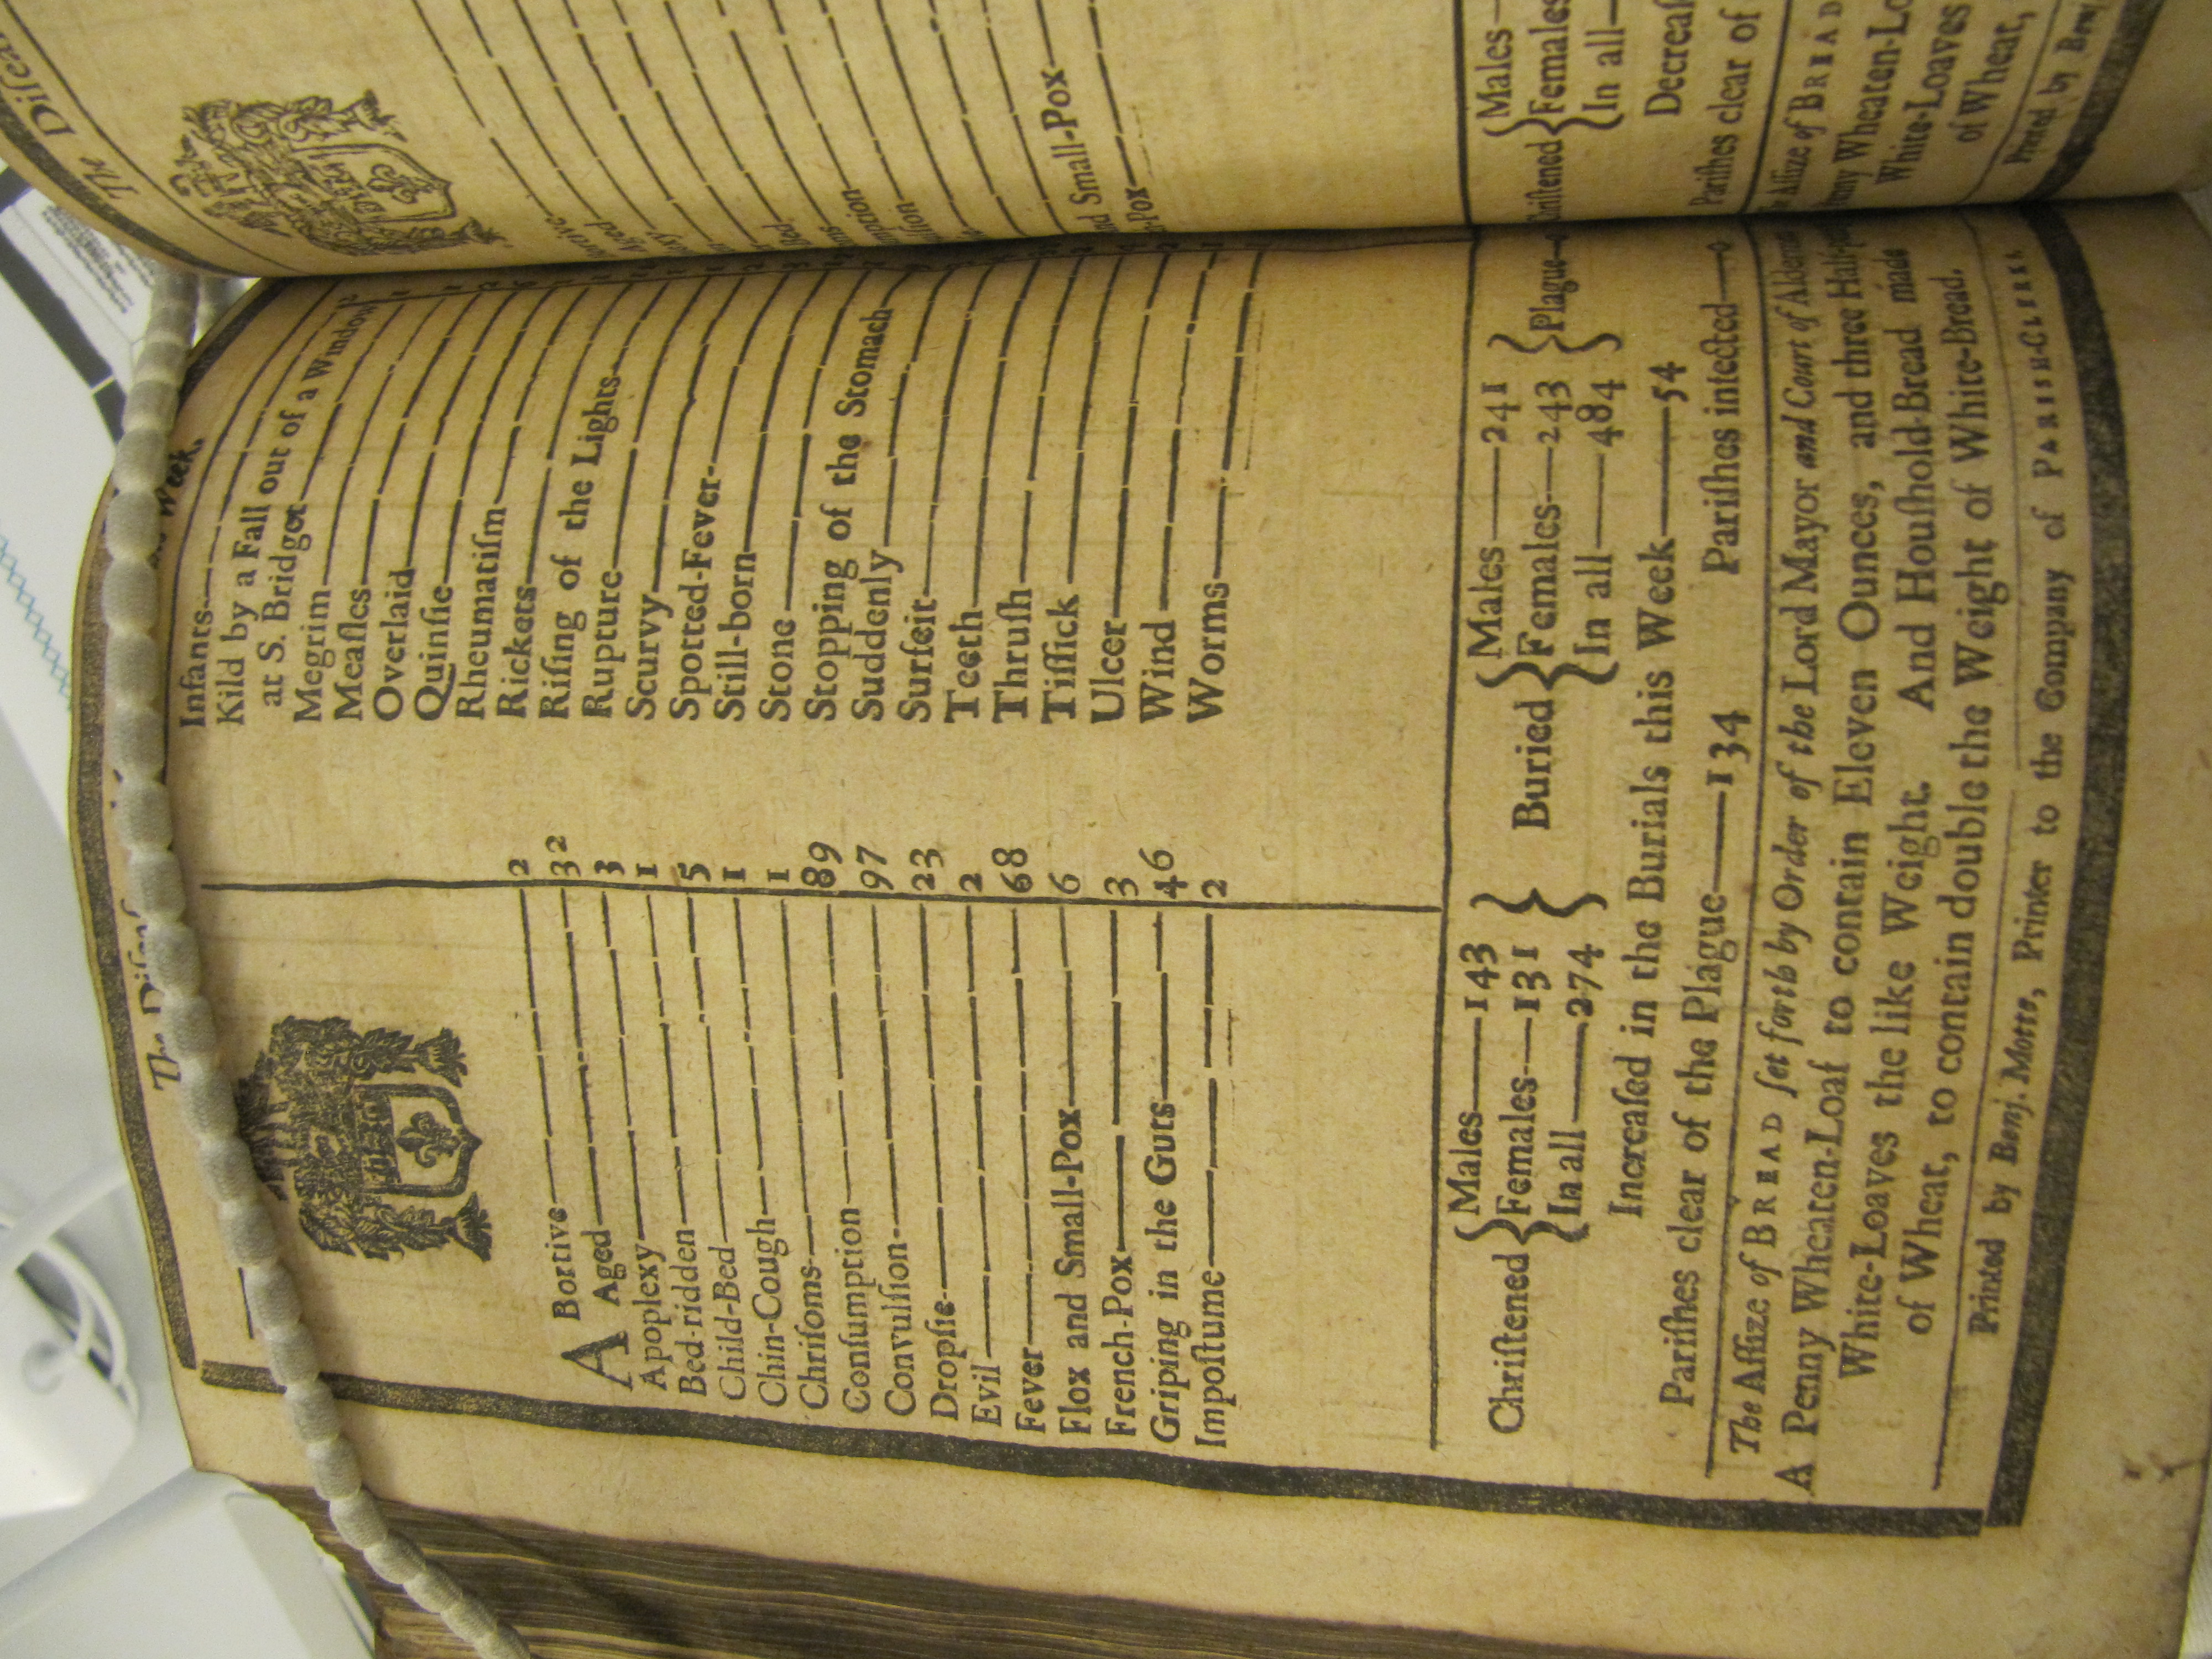 The Diseas
Week.
ABortive 2
Aged 32
Apoplexy 3
Bed-ridden 1
Child-Bed 5
Chin-Cough 1
Chriſoms 1
Conſumption 89
Convulſion 97
Dropſie 23
Evil 2
Fever 68
Flox and Small-Pox 6
French-Pox 3
Griping in the Guts 46
Impoſtume 2
Infants
Kild by a Fall out of a Window
at S. Bridget
Megrim
Meaſles
Overlaid
Quinſie
Rheumatiſm
Rickets
Riſing of the Lights
Rupture
Scurvy
Spotted-Fever
Still-born
Stone
Stopping of the Stomach
Suddenly
Surfeit
Teeth
Thruſh
Tiſſick
Ulcer
Wind
Worms
Chriſtened { Males 143 Females 131 In all 274 } Buried { Males 241 Females 243 In all 484 } Plague 0
Increaſed in the Burials this Week 54
Pariſhes clear of the Plague 134 Pariſhes infected 0
The Aſſize of BREAD ſet forth by Order of the Lord Mayor and Court of
A Penny Wheaten-Loaf to contain Eleven Ounces, and three
White-Loaves the like Weight. And Houſhold-Bread made
of Wheat, to contain double the Weight of White-Bread.
Printed by Benj. Motte, Printer to the Company of PARISH-CLERKS
The Diſeaſ
and Small-Pox
-Pox
Chriſtened { Males
Females
In all
Decreaſ
Pariſhes clear of
Aſſize of BREAD
Penny Wheaten-Lo
White-Loaves
of Wheat,
Printed by Benj.